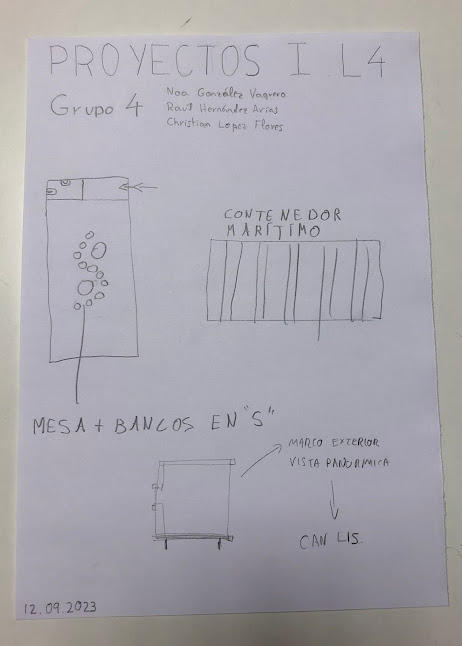 PROYECTOS I L4
Grupo 4
Noa González Vaquero
Raul Hernández Arias
Christian Lopez Flores
CONTENEDOR
MARÍTIMO
MESA + BANCOS EN "S"
MARCO EXTERIOR
VISTA PANORMICA
CAN LIS
12.09.2023